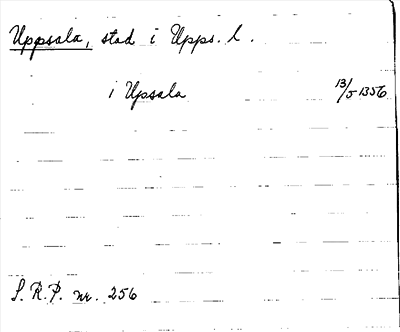 Uppsala, stad i Upps. l.
i Upsala 13/5 1356
S. R. P. nr. 256